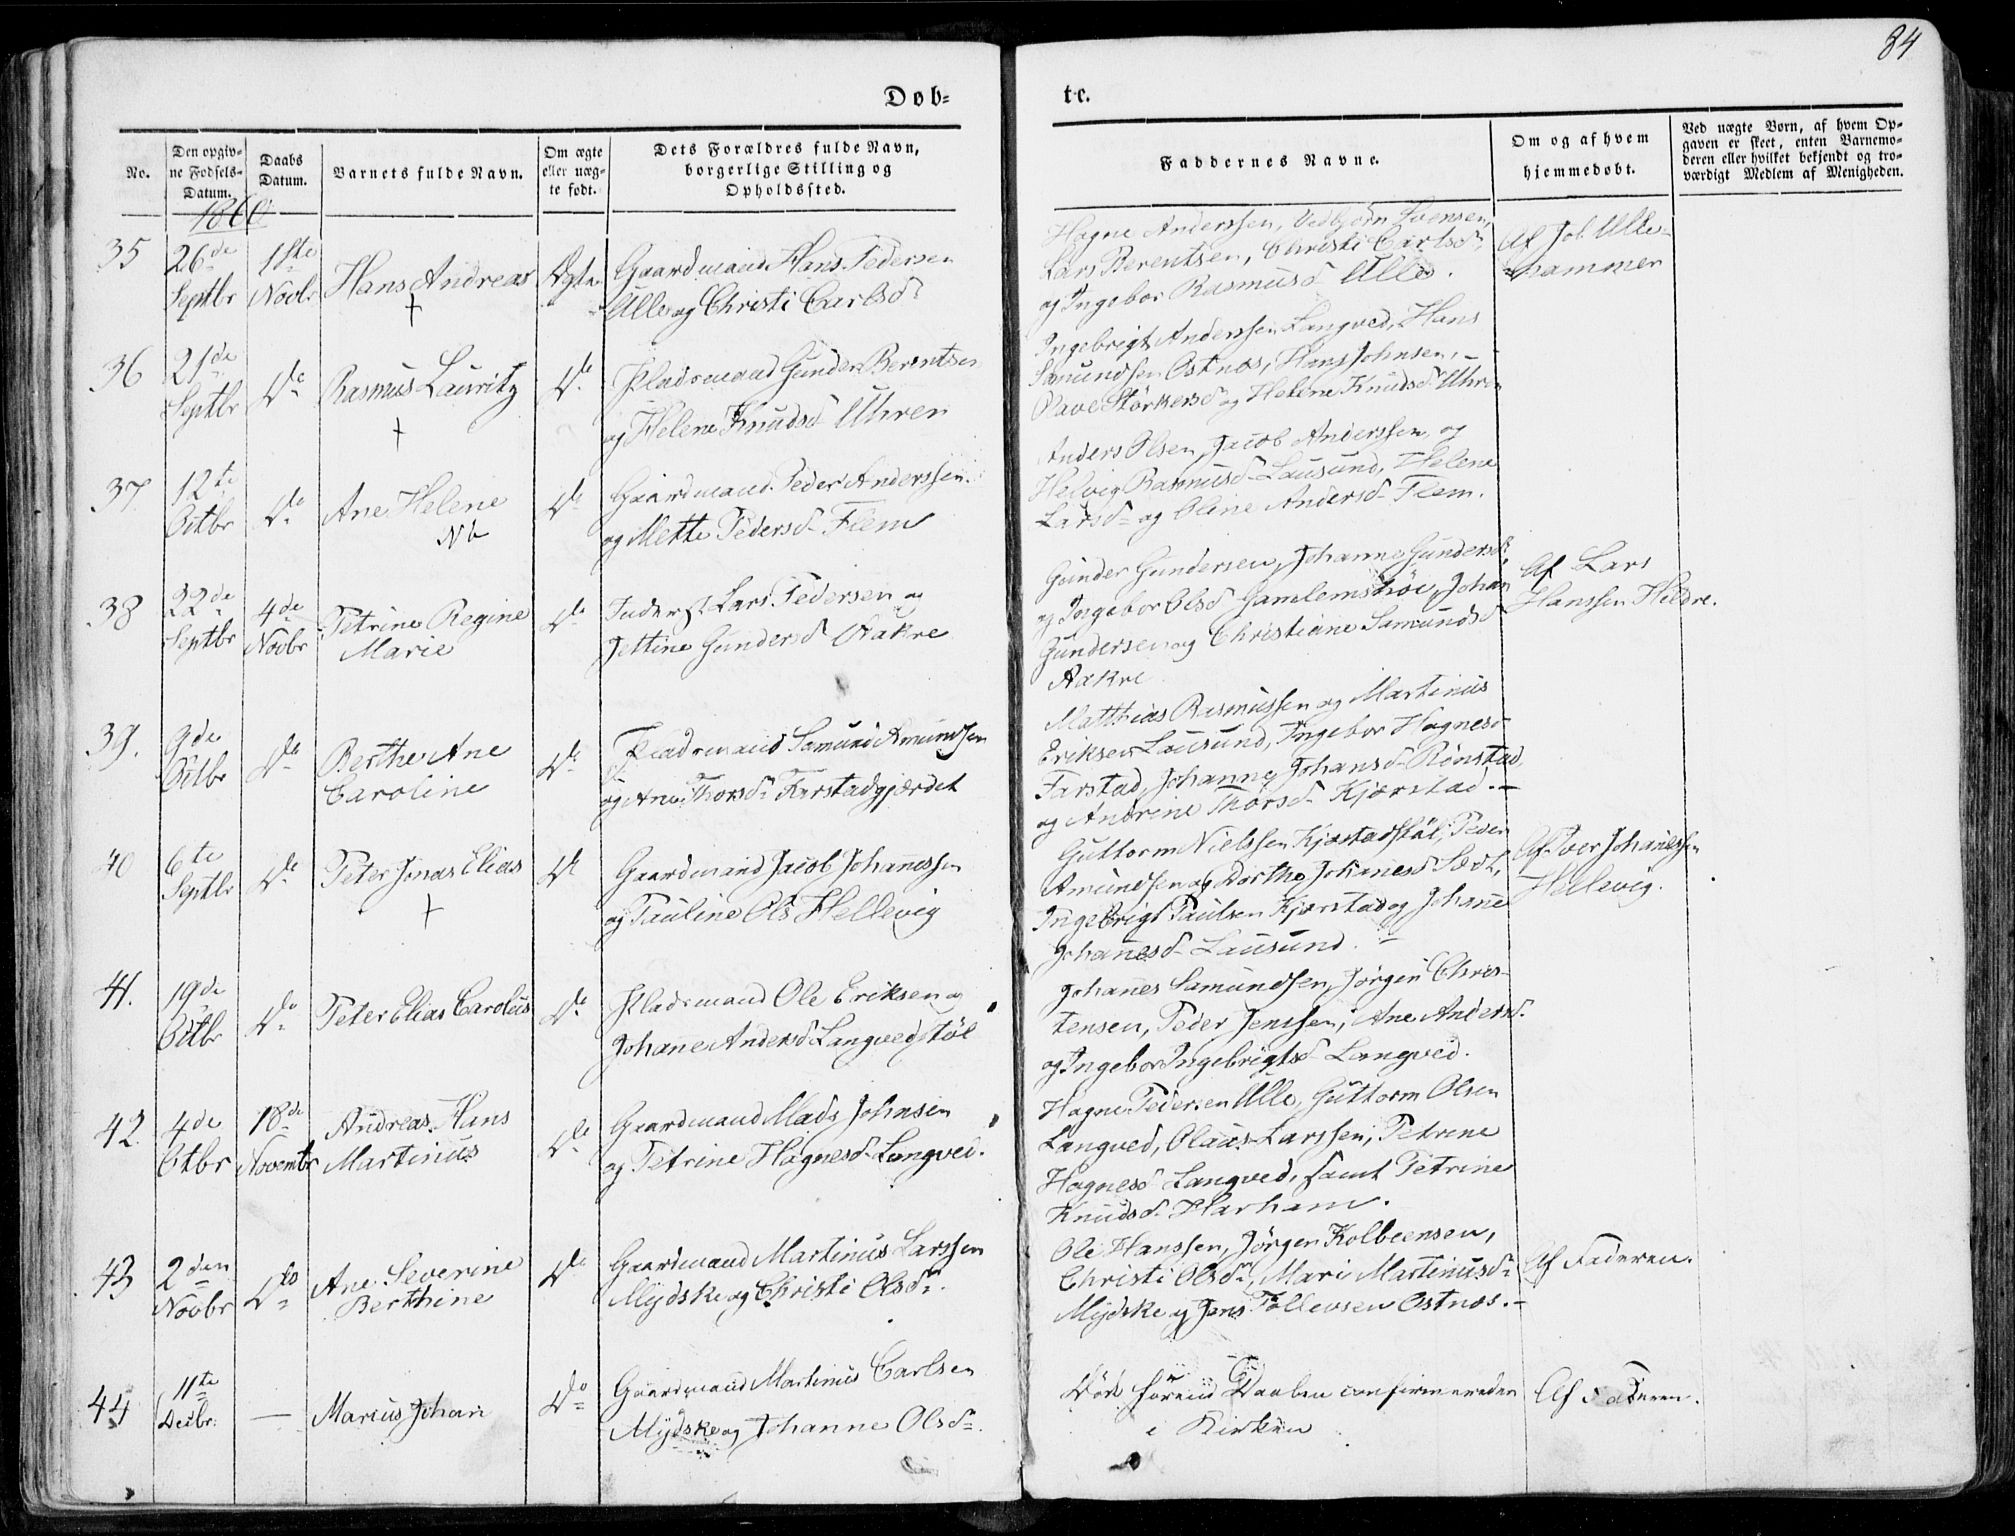 84
Døb-
te.
No.
Den opgiv-
ne Fødsels-
Datum.
Daabs
Datum.
Barnets fulde Navn.
Om ægte
eller uæg-
te født.
Dets Forældres fulde Navn,
borgerlige Stilling og
Opholdssted.
Faddernes Navne.
Om og af hvem
hjemmedøbt.
Ved uægte Børn, af hvem Op-
gaven er skeet, enten Barnemo-
deren eller hvilket bekjendt og tro-
værdigt Medlem af Menigheden.
1860
35
26de
Septbr
11te
Novbr
Hans Andreas
+
Ægte
Gaardmand Hans Pedersen
Ulle og Christi Carlsd.
Hagne Anderssen, Vedbjørn Svensen,
Lars Berentsen, Christi Carlsd
og Ingebor Rasmusd Ulle.
Af Joh. Ulle-
hammer
36
21de
Septbr
Do
Rasmus Lauritz
+
Do
Pladsmand Gunder Berentsen
og Helene Knudsd Uhren
Ingebrigt Anderssen Langved, Hans
Samundsen Ostnæs, Hans Johnsen,
Olave Størkersd og Helene Knudsd Uhren
37
12te
Octbr
Do
Ane Helene
Nb
Do
Gaardmand Peder Anderssen
og Mette Pedersd Flem
Anders Olsen, Jacob Anderssen og
Helvig Rasmusd Lausund, Helene
Larsd og Oline Andersd Flem.
38
22de
Septbr
4de
Novbr
Petrine Regine
Marie
Do
Inderst Lars Pedersen og
Jettine Gundersd Aakre
Gunder Gundersen, Johanne Gundersd
og Ingebor Olsd Gamlemshøe, Johan
Gundersen og Christiane Samundsd
Aakre
Af Lars
Hanssen Hildre.
39.
9de
Octbr
Do
Berthe Ane
Caroline
Do
Pladsmand Samund Amundsen
og Ane Thorsd Farstadgjærdet
Matthias Rasmussen og Martinus
Eriksen Lausund, Ingebor Hagnesd
Farstad, Johanne Johansd Rønstad,
og Andrine Thorsd Kjærstad.
40
6te
Septbr
Do
Peter Jonas Elias
+
Do
Gaardmand Jacob Johanessen
og Pauline Ols Hellevig
Guttorm Nielssen Kjærstadstøl, Peder
Amundsen og Dorthe Johanesd
Ingebrigt Paulsen Kjærstad og Johane
Johanesd Lausund.
Af Iver Johanessen
Hellevig.
41.
19de
Octbr
Do
Peter Elias Carolus
Do
Pladsmand Ole Eriksen og
Johane Andersd Langvedstøl
Johanes Samundsen, Jørgen Chris-
tensen, Peder Jenssen, Ane Andersd.
og Ingebor Ingebrigtsd Langved.
42.
4de
Octbr
18de
Novembr
Andreas Hans
Martinus
Do
Gaardmand Mads Johnsen
og Petrine Hagnesd Langved.
Hagne Pedersen Ulle, Guttorm Olsen
Langved, Olaus Larssen, Petrine
Hagnesd Langved, samt Petrine
Knudsd Harham.
43
2den
Novbr
Do
Ane Severine
Berthine
Do
Gaardmand Martinus Larssen
Mydske og Christi Olsd.
Ole Hanssen, Jørgen Kolbeensen,
Christi Olsd, Mari Martinusd
Mydske og Jens Tollevsen Ostnæs.
Af Faderen.
44
11te
Decbr.
—
Marius Johan
Do
Gaardmand Martinus Carlsen
Mydske og Johanne Olsd.
Døde førend Daaben confirmeredes
i Kirken
Af Faderen.